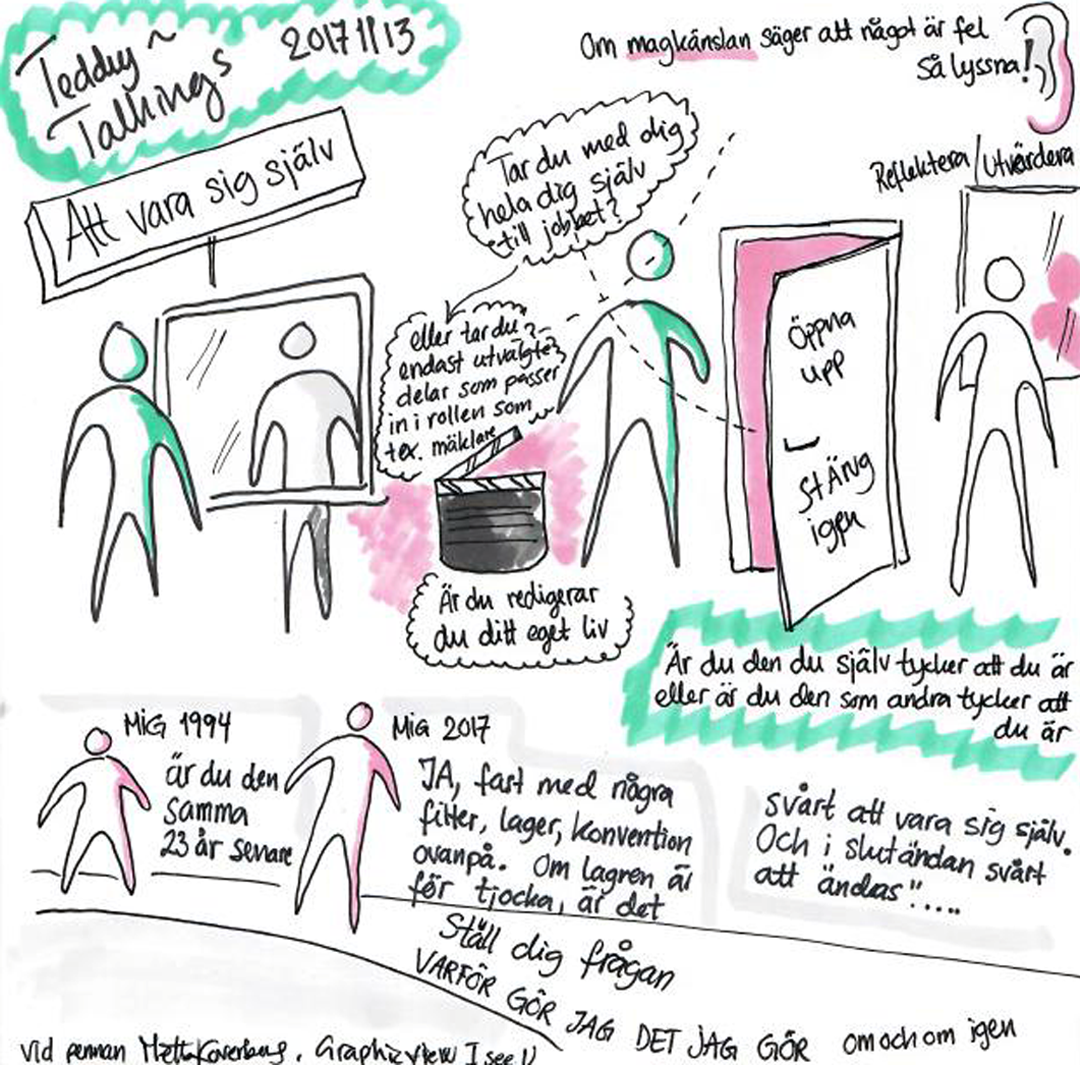 Teddy~
Talkings
20171113
Om magkänslan säger att något är fel
Så lyssna!
Att vara sig själv
Tar du med dig
hela dig själv
till jobbet?
Reflektera/Utvärdera
eller tar du
endast utvalgte
delar som passer
in i rollen som
tex. mäklare
Öppna
upp
STÄNG
igen
Är du redigerar
du ditt eget liv
Är du den du själv tycker att du är
eller är du den som andra tycker att
du är
MiG 1994
är du den
samma
23 år senare
MiG 2017
JA, fast med några
filter, lager, konvention
ovanpå. Om lagren är
för tjocka, är det
svårt att vara sig själv.
Och i slutändan svårt
att ändas"....
Ställ dig frågan
VARFÖR GÖR JAG DET JAG GÖR om och om igen
Vid pennan Graphic view I see U